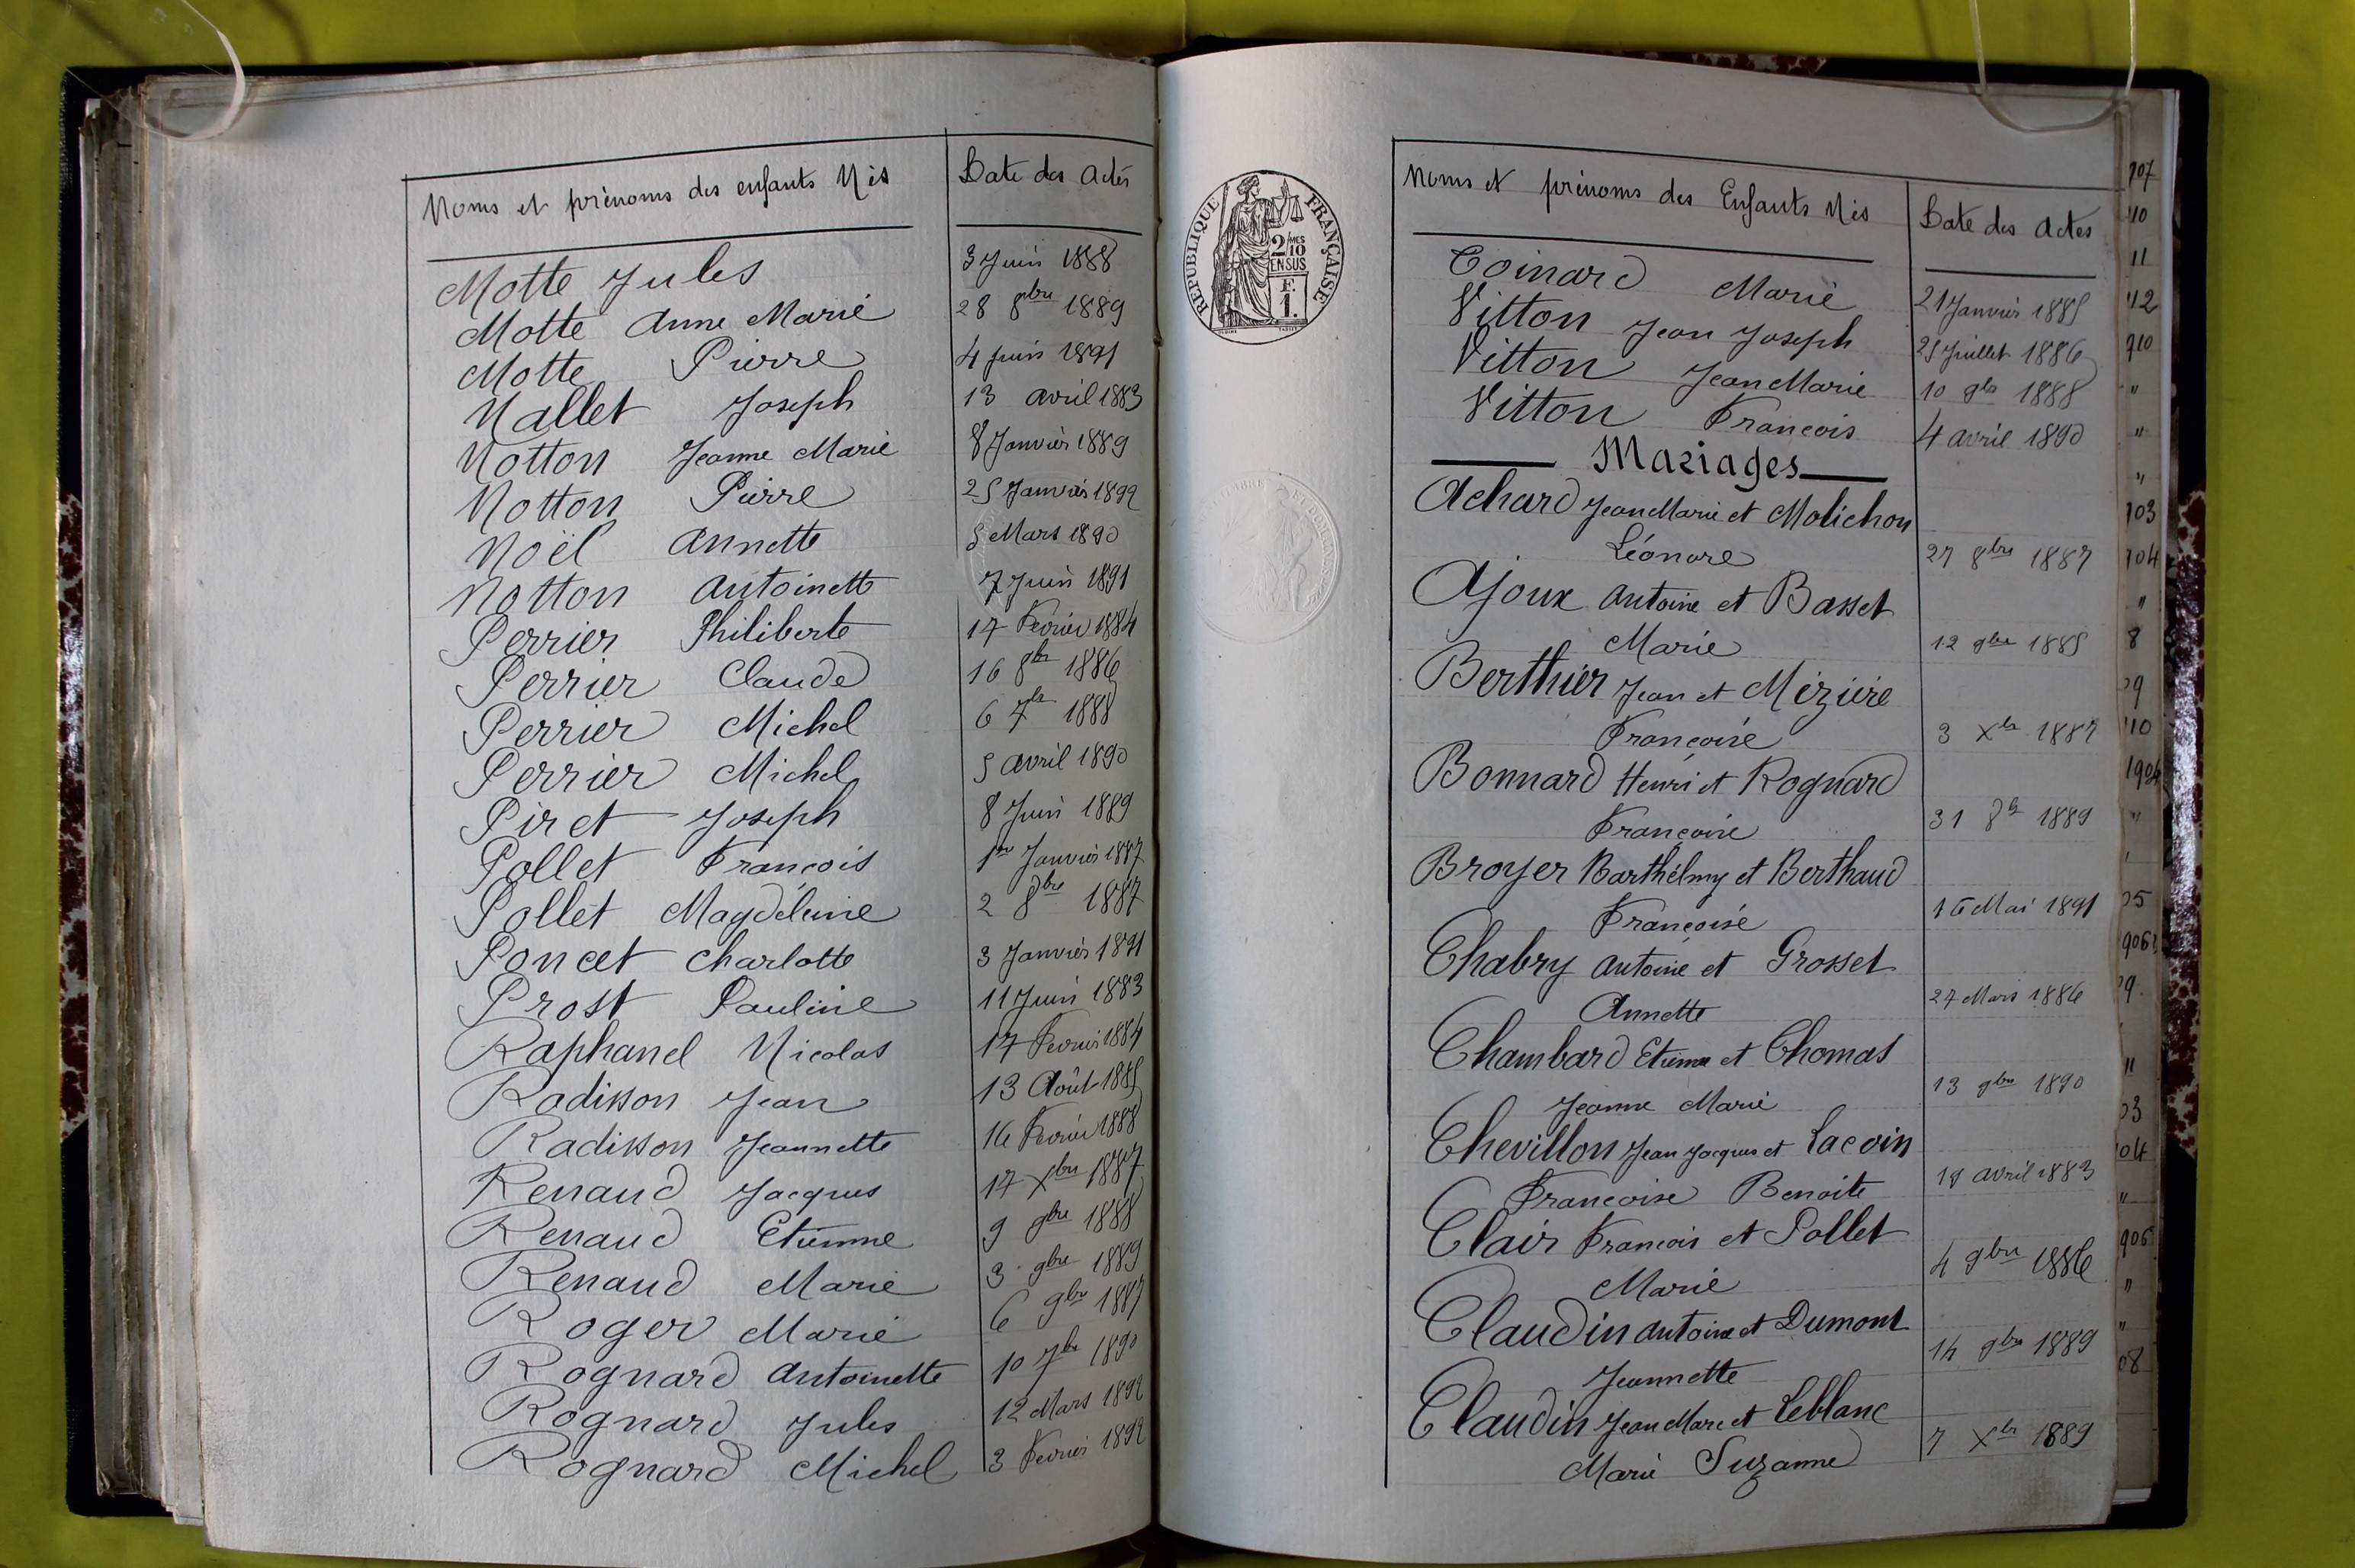 Noms et prénoms des enfants Nés
Date des Actes
Motte Jules 3 Juin 1888
Motte Anne Marie 28 8bre 1889
Motte Pierre 4 Juin 1891
Nallet Joseph 13 avril 1883
Notton Jeanne Marie 8 Janvier 1889
Notton Pierre 25 Janvier 1892
Noël Annette 5 Mars 1890
Notton Antoinette 7 Juin 1891
Perrier Philiberte 17 Fevrier 1884
Perrier Claude 16 8bre 1886
Perrier Michel 6 7bre 1888
Perrier Michel 5 avril 1890
Piret Joseph 8 Juin 1889
Pollet François 1er Janvier 1887
Pollet Magdéleine 2 8bre 1887
Poncet Charlotte 3 Janvier 1891
Prost Pauline 11 Juin 1883
Raphanel Nicolas 17 Fevrier 1884
Radisson Jean 13 Août 1885
Radisson Jeannette 16 Fevrier 1888
Renaud Jacques 17 Xbre 1887
Renaud Etienne 9 9bre 1888
Renaud Marie 3 9bre 1889
Roger Marie 6 9bre 1887
Rognard Antoinette 10 7bre 1890
Rognard Jules 12 Mars 1892
Rognard Michel 3 Fevrier 1892
RÉPUBLIQUE FRANÇAISE
2/10 MES
EN SUS
F.
1.
Noms et prénoms des Enfants Nés
Date des Actes
Toinard Marie 21 Janvier 1885
Vitton Jean Joseph 25 Juillet 1886
Vitton Jean Marie 10 9bre 1888
Vitton François 4 avril 1890
Mariages
Achard Jean Marie et Molichon
Léonore 27 8bre 1887
Ajoux Antoine et Basset
Marie 12 9bre 1885
Berthier Jean et Mézière
Françoise 3 Xbre 1887
Bonnard Henri et Rognard
Françoise 31 8bre 1889
Broyer Barthélmy et Berthaud
Françoise 16 Mai 1891
Chabry Antoine et Grosset
Annette 27 Mars 1886
Chambard Etienne et Thomas
Jeanne Marie 13 9bre 1890
Chevillon Jean Jacques et Lacoin
Françoise Benoite 19 avril 1883
Clair François et Pollet
Marie 4 9bre 1886
Claudin Antoine et Dumont
Jeannette 14 9bre 1889
Claudin Jean Marc et Leblanc
Marie Suzanne 7 Xbre 1889
907
10
11
12
910
"
"
"
903
904
"
8
09
10
1904
"
05
906
09
"
03
04
"
906
"
"
08